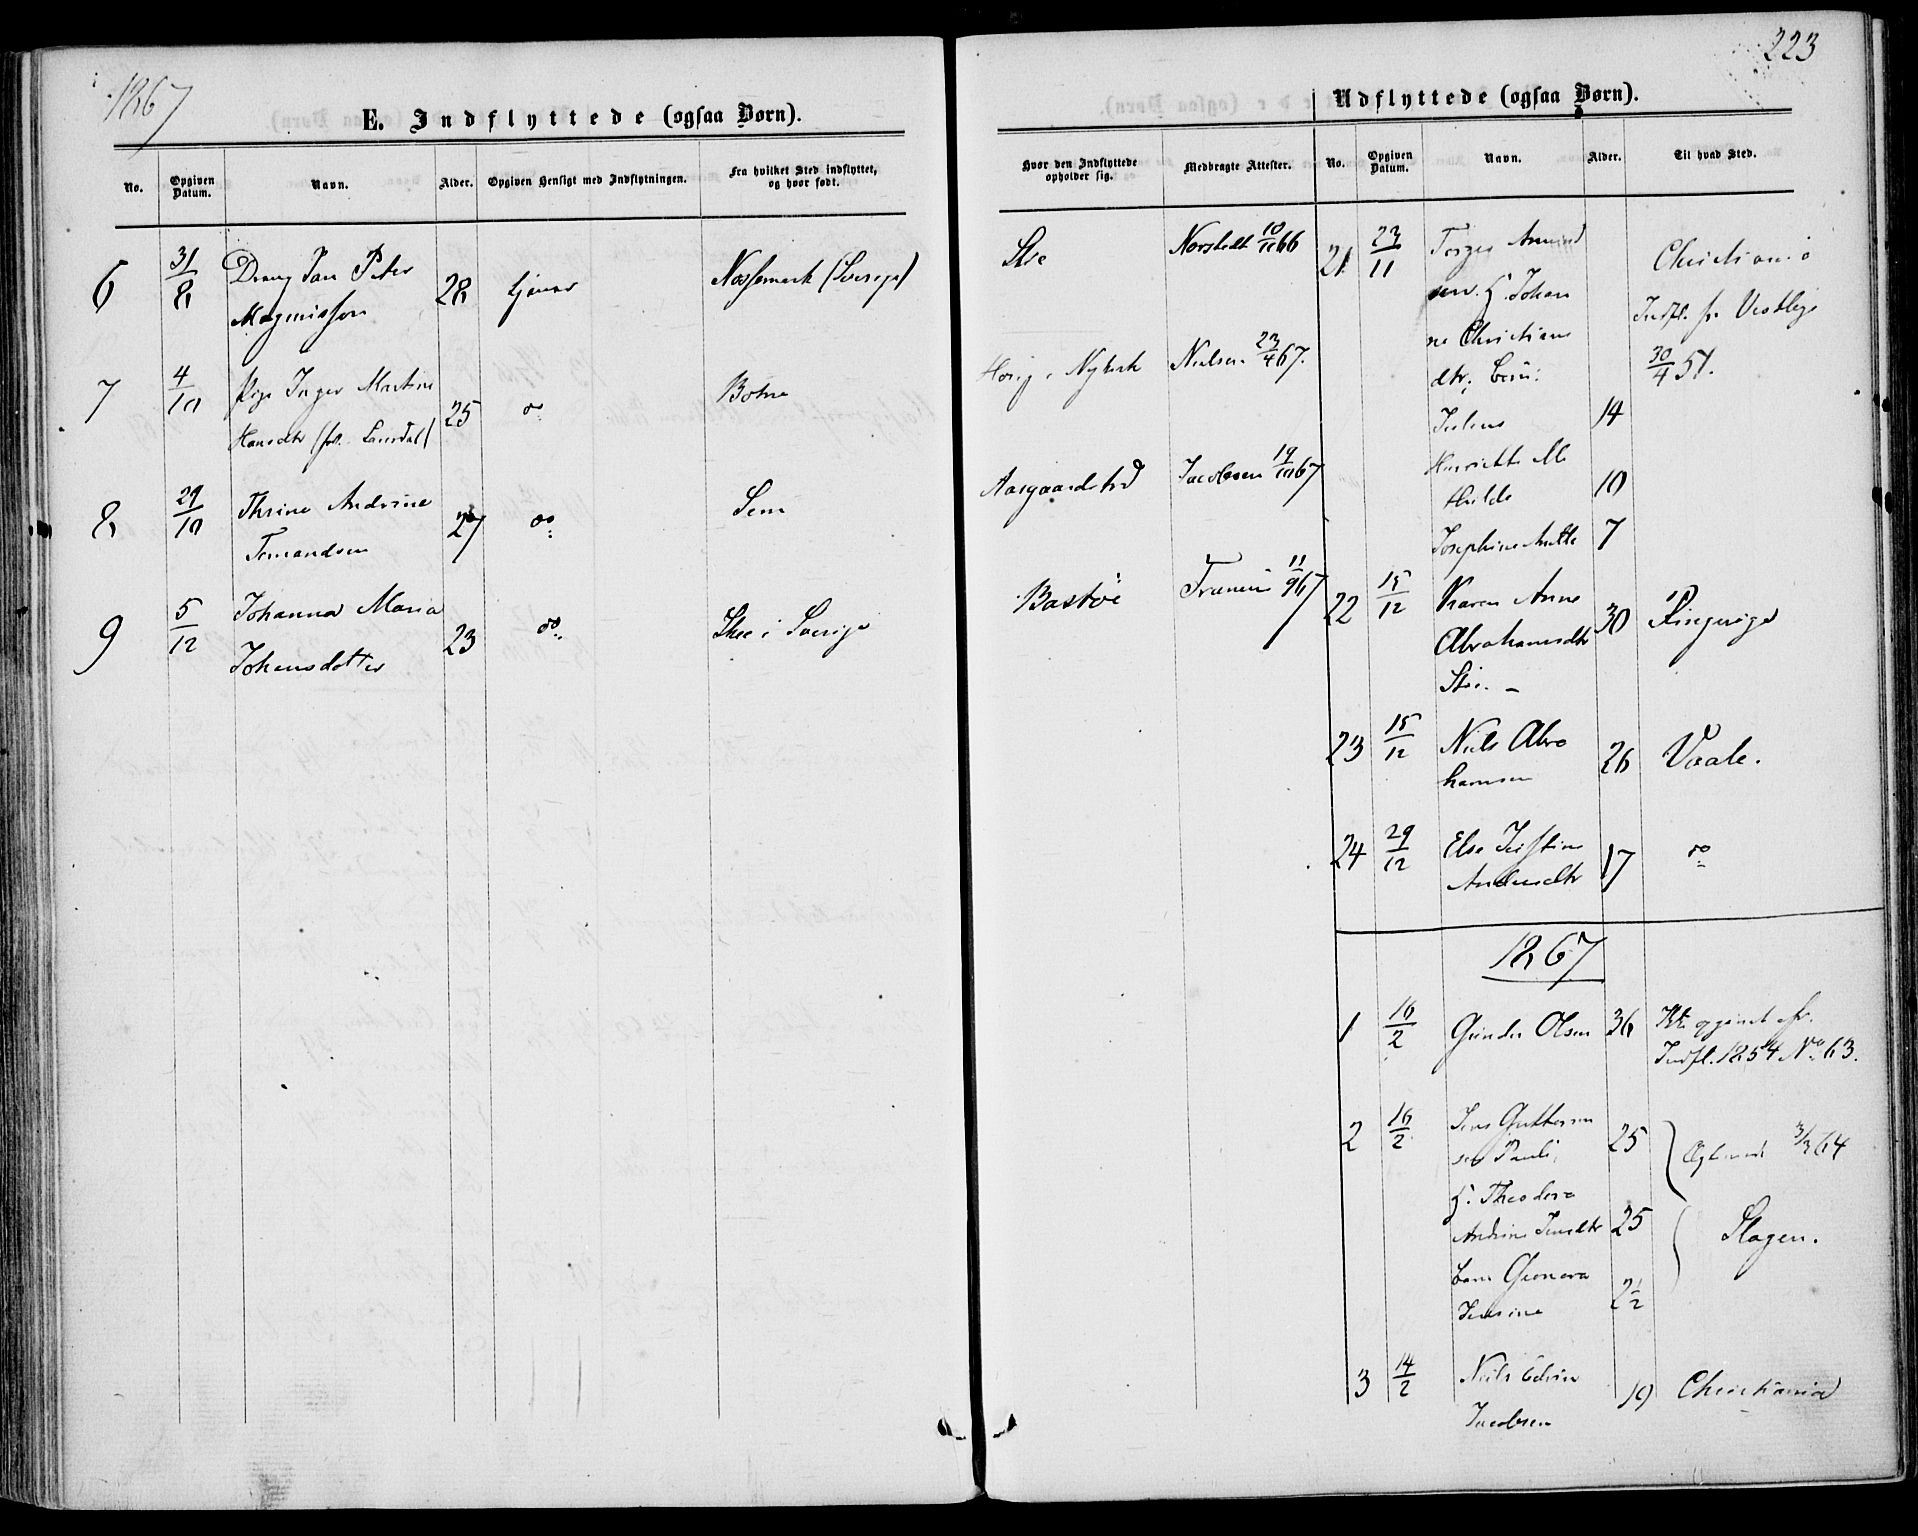 1867
E. Indflyttede (ogsaa Børn).
No.
Opgiven Datum.
Navn.
Alder.
Opgiven Hensigt med Indflytningen.
Fra hvilket Sted indflyttet, og hvor født.
6 31/8 Dreng Jan Peter 28 tjene Nossemark (Sverige)
Magnusson
7 4/10 Pige Inger Martine 25 do Botne
Hansdtr
8 29/10 Thrine Andrine 27 do Sem
9 5/12 Johanna Maria 23 do Skee i Sverige
Johansdotter
223
Udflyttede (ogsaa Børn).
Hvor den Indflyttede opholder sig.
Medbragte Attester.
No.
Opgiven Datum.
Navn.
Alder.
Til hvad Sted.
Norstedt 10/10 66
Nielsen 23/4 67.
Jacobsen 19/10 67
Bastøe 11/9 67
21 23/11 Christiania
sen. H. Johan
Indfl. fr.
ne Christians
dtr, Børn: 30/4 51.
Julius 14
Henriette Ma
thilde 10
Josephine 7
22 15/12 Karen Anne 30 Ringerige
Abrahamsdtr
23 15/12 Niels Abra 26 Vaale.
hamsen
24 29/12 Else 17 do
Andersdtr
1867
1 16/2 Gunder Olsen 36 Ikke opgivet cfr.
Indfl. 1854 No 63.
2 16/2 Jens Guttorm 25
sen Pauli, 3/3 64
H. Theodora
Andrine Jensdtr 25 Slagen.
barn
Jensine 2 1/2
3 14/2 Niels Edvin 19 Christiania
Jacobsen